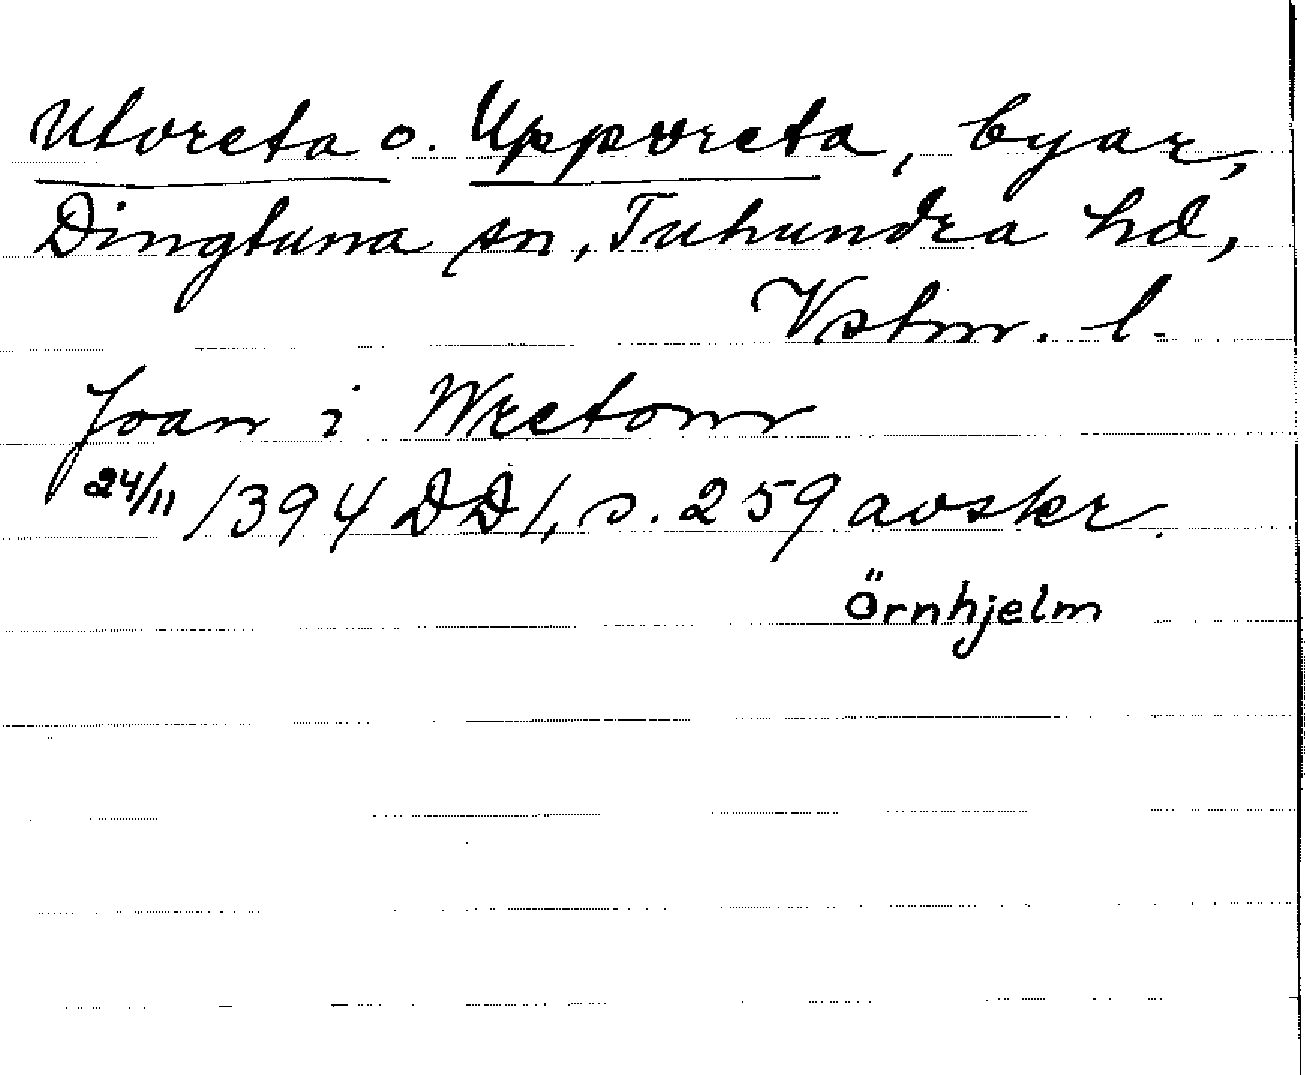 Utvreta o. Uppvreta, byar,
Dingtuna sn, Tuhundra hd,
Vstm. l.
Joan i Wretom
24/11 1394 DD1, s. 259 avskr.
Örnhjelm